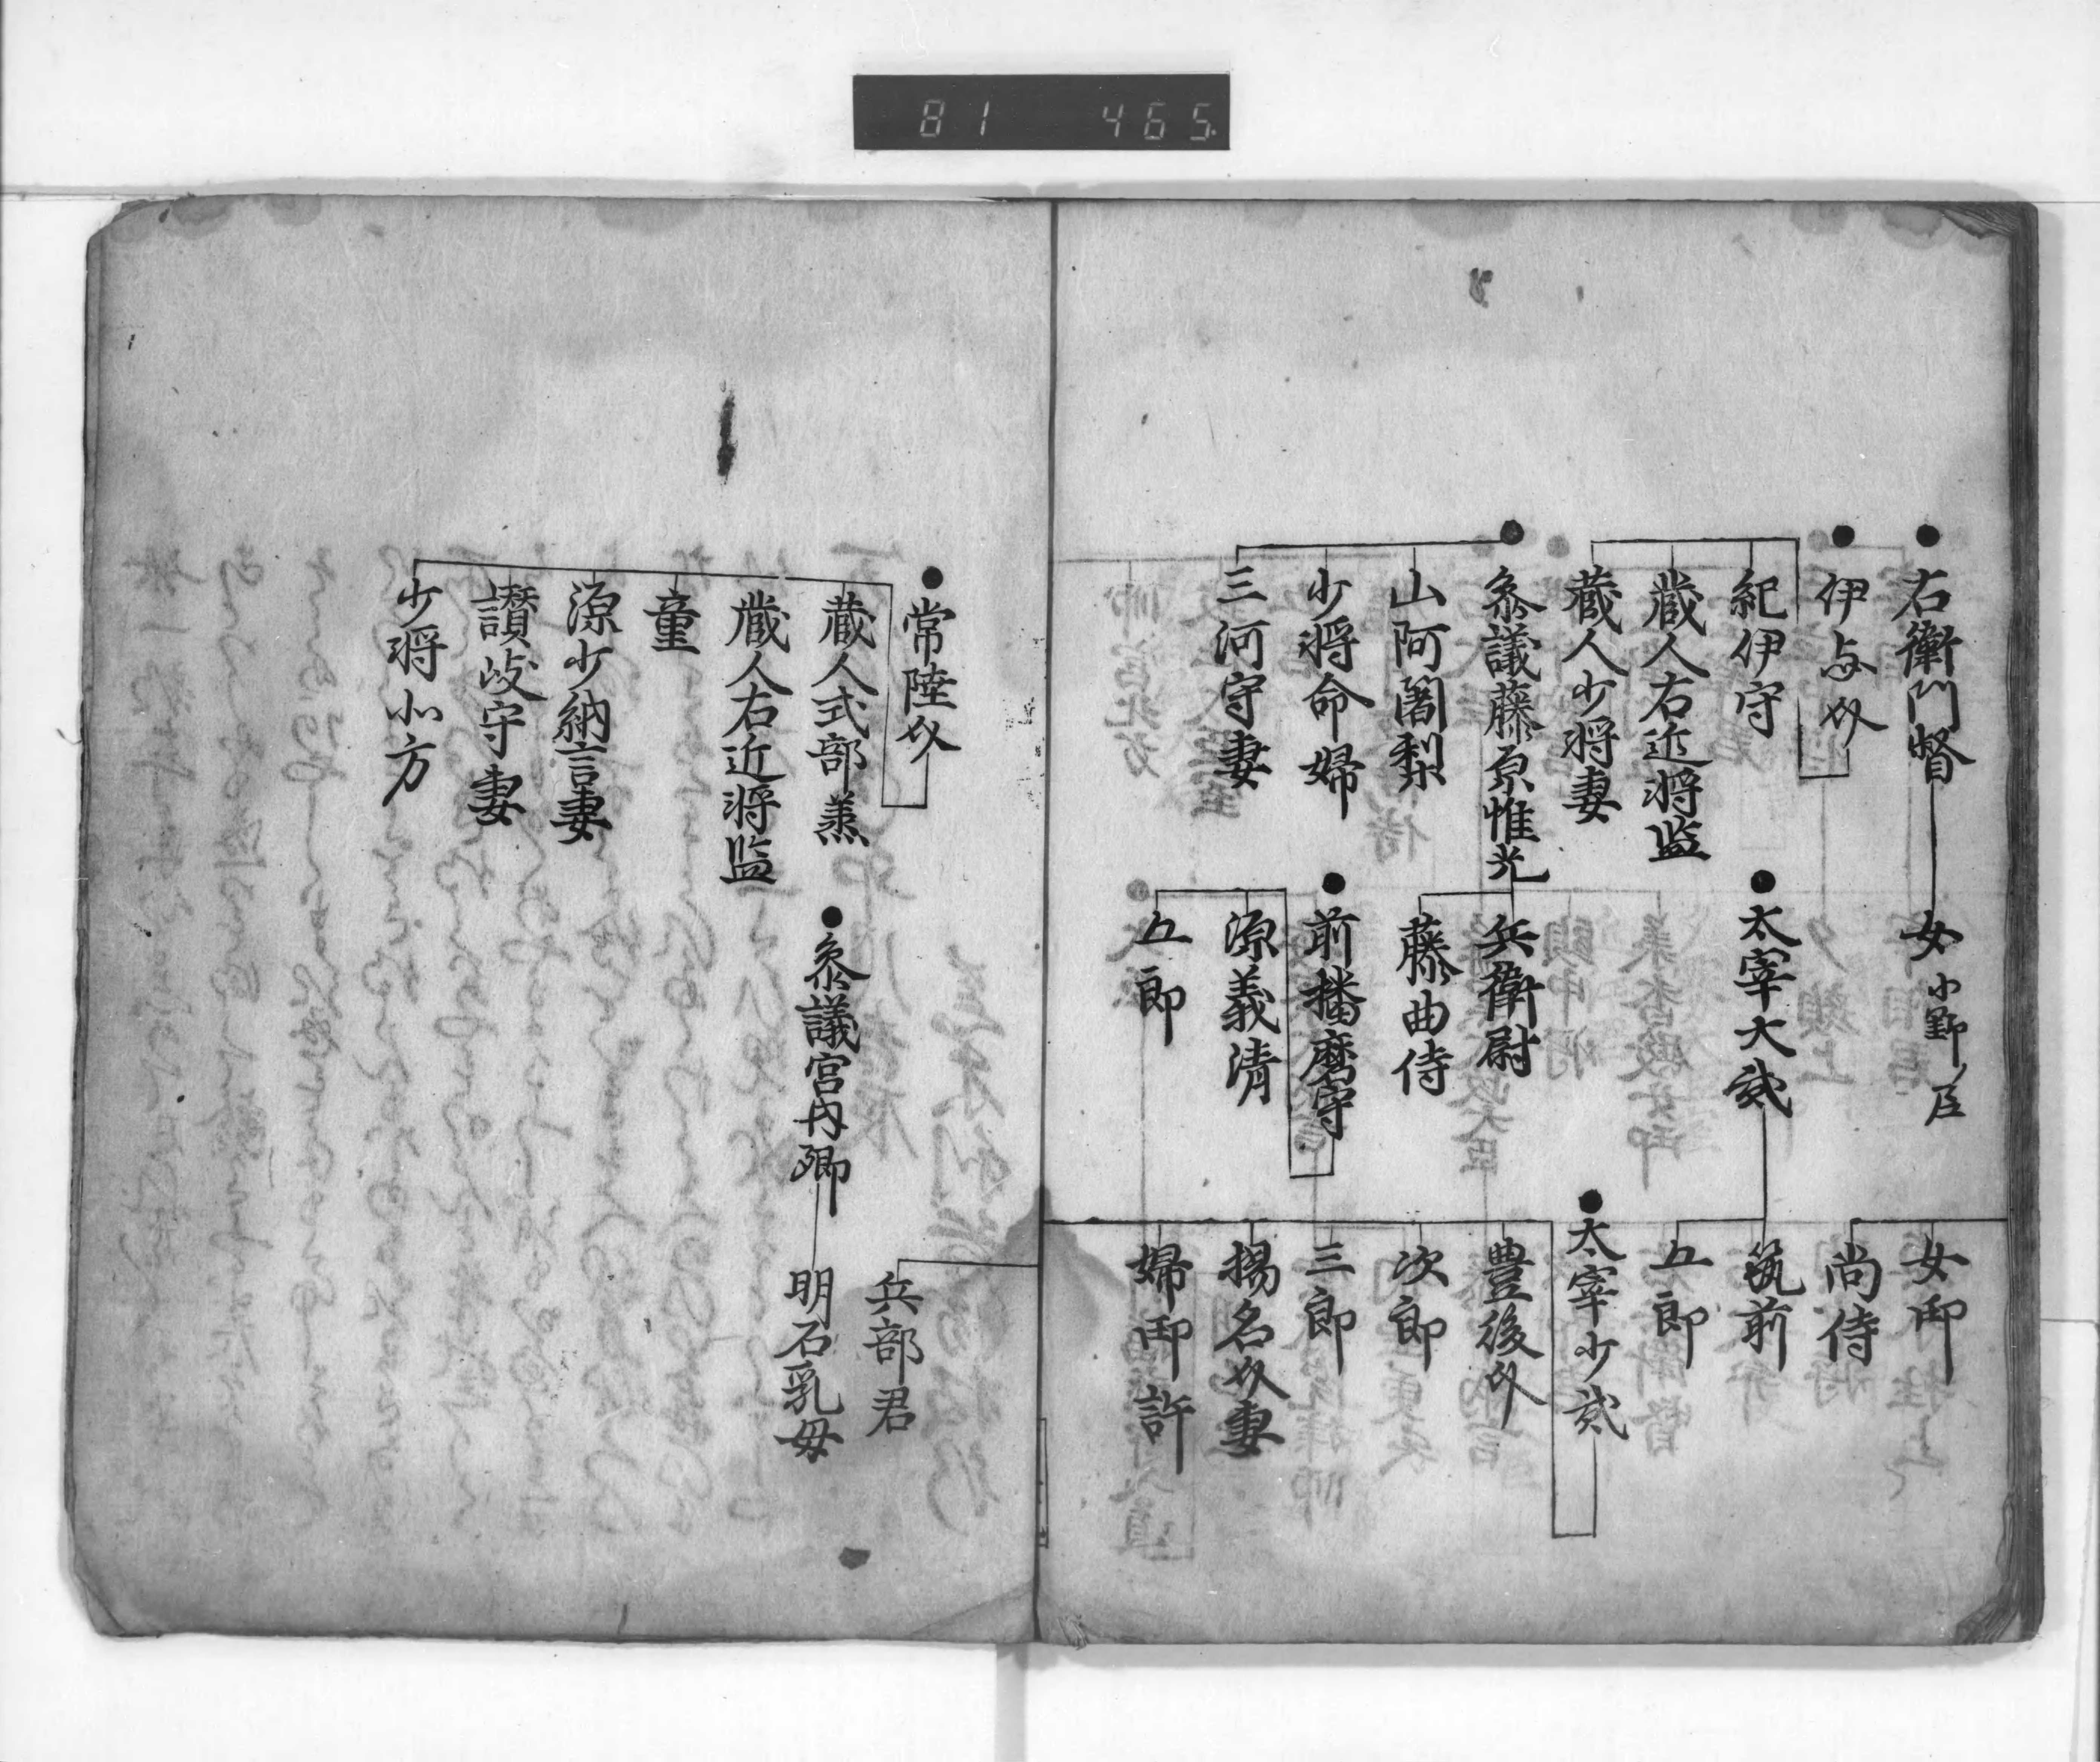 81 465
右衛門督
女 小野尼
女御
尚侍
伊与介
紀伊守
蔵人右近将監
蔵人少将妻
太宰大弐
筑前
五郎
参議藤原惟光
山阿闍梨
少将命婦
三河守妻
兵衛尉
藤典侍
太宰少弐
豊後介
次郎
三郎
揚名介妻
婦御許
前播磨守
源義清
五郎
兵部君
常陸介
蔵人式部丞
蔵人右近将監
童
源少納言妻
讃岐守妻
少将北方
参議宮内卿
明石乳母